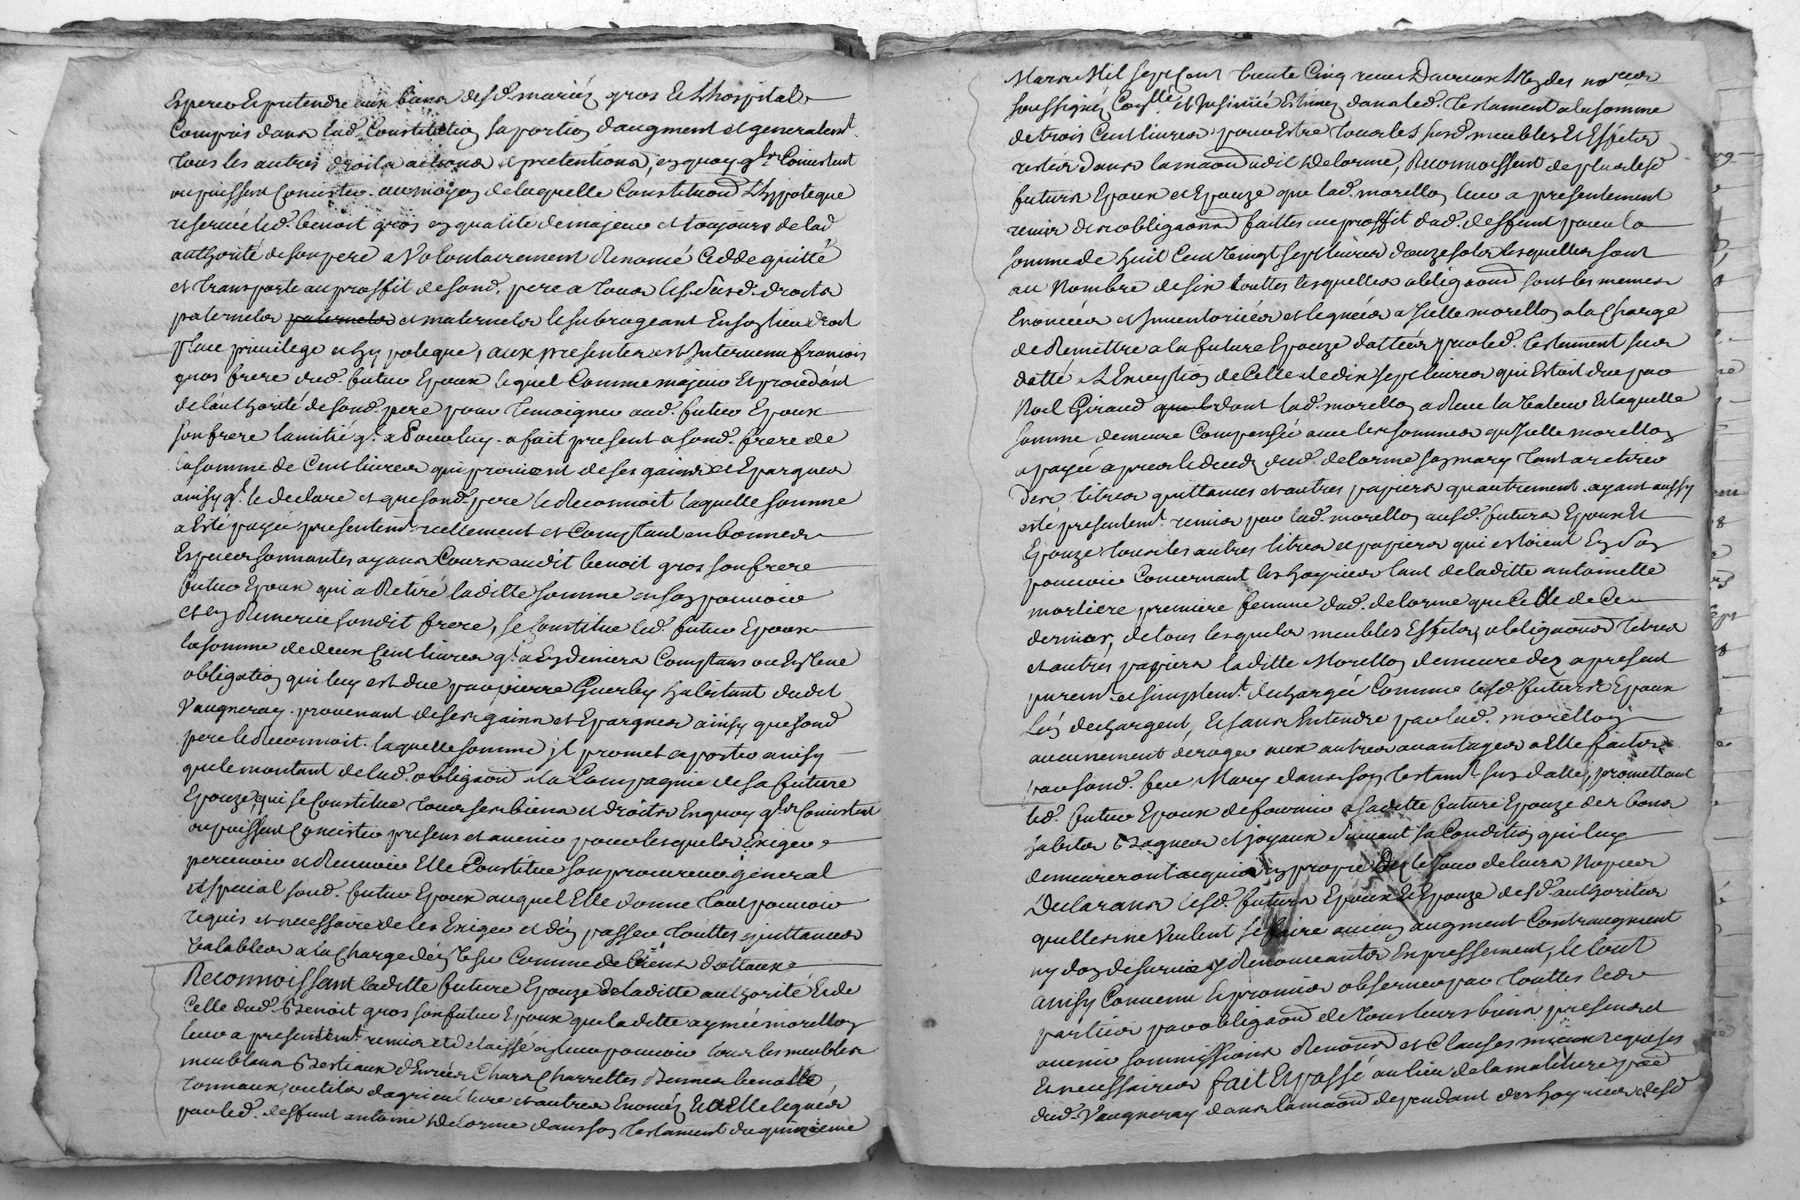 Esperer Et pretendre aux biens desd. mariéz gros Et Lhospital
Compris dans lad. Constitution sa portion daugment et generalemt.
tous les autres droits actions et pretentions, en quoy qlz Consistent
ou puissent Consister. au moyen de laquelle Constitution Lhypoteque
reservée led. benoist gros en qualité de majeur et toujours de lad.
authorité de son pere a Volontairement Renoncé Ceddé quitté
et transporté au proffit de sond. pere a tous lesd. susd. droits
paternels paternels et maternels le subrogeant En son lieu droit
place privilege et hypoteque, aux presentes est Intervenu françois
gros frere dud. futur Epoux lequel Comme majeur Et procedant
de lauthorité de sond. pere pour temoigner aud. futur Epoux
son frere lamitié ql. a Pour luy. a fait present a sond. frere de
la somme de Cent livres qui provient de ses gains et Epargnes
ainsy ql. le declare et que sond. pere le Reconnoit laquelle somme
a Esté payée presentemt. reellement et Comptant en bonnes
Especes sonnantes ayans Cours audit benoit gros son frere
futur Epoux qui a Retiré laditte somme en son pouvoir
et en Remercie sondit frere, se Constitue led. futur Epoux
la somme de deux Cent livres ql. a En deniers Comptans ou En une
obligation qui luy est due par pierre Guerby habitant dudit
Vaugneray. provenant de ses gains et Epargnes ainsy que sond.
pere le Reconnoit. laquelle somme jl promet aporter ainsy
que le montant de lad. obligaon. a la Compagnie de sa future
Epouze qui se Constitue tous ses biens et droits En quoy qls. Consistent
ou puissent Concister presens et avenir pour lesquels Exiger
percevoir et Recevoir Elle Constitue son procureur général
et special sond. futur Epoux auquel Elle donne tout pouvoir
requis et necessaire de les Exiger et den passer touttes quittances
Valables a la Charge den Estre Comme de biens dottaux
Reconnoissant laditte future Epouze de laditte authorité Et de
Celle dud. Benoit gros son futur Epoux que laditte aymée morellon
leur a presentemt. remis et delaissé a leur pouvoir tous les meubles
meublans Bestiaux denrées Chars Charrettes Bennes benots
tonneaux, outils dagriculture et autres Enoncéz Et a Elle legués
par led. deffunt antoine delorme dans son testament du quinzieme
Mars Mil sept Cent trente Cinq receu Par ceux L'un des notres.
soussignéz Conllé. et Insinué Estimés dans led. testament a la somme
de trois Cent livres pour Estre tous lesd. susd. meubles Et Effets
restés dans la maon. dudit delorme, Reconnoissent de plus lesd.
futurs Epoux et Epouze que lad. morellon leur a presentement
remis des obligaons. faittes au proffit dud. deffunt pour la
somme de huit Cent Vingt sept livres douze sols lesquelles sont
au Nombre de six touttes lesquelles obligaons. sont les memes
Enoncées et Inventoriées et leguées a Icelle morellon a la Charge
de Remettre a la future Epouze datteés par led. testament sus
datté a L'Exception de Celle de dix sept livres qui Estoit due par
Noel Giraud que dont lad. morellon a Receu la Valeur Et laquelle
somme demeure Compensée avec les sommes qu'Icelle morellon
a payée apres le decéz dud. delorme son mary tant a retirer
des titres quittances et autres papiers qu'autrement. ayant aussy
esté presentemt. remis par lad. morellon ausd. futurs Epoux Et
Epouze tous les autres titres et papiers qui estoient En son
pouvoir Concernant les hoyries tant de laditte antoinette
mortiere premiere femme dud. delorme que Celle de Ce
dernier, de tous lesquels meubles Effets, obligaons. titres
et autres papiers laditte Morellon demeure dez a present
puremt. et simplemt. dechargée Comme lesd. futurs Epoux
Len dechargent, Et sans Entendre par lad. morellon
aucunement deroger aux autres avantages a Elle faits
par sond. feu Mary dans son testamt. sus datté, promettant
led. futur Epoux de fournir a laditte future Epouze des bons
habits Bagues et joyaux suivant sa Condition qui luy
demeureront acquis en propre Dez le jour de leurs Nopces
Declarans lesd. futurs Epoux Et Epouze desd. authorités
qu'ils ne Veulent se faire aucun augment Contraugment
ny don de survie y Renonceants Expressement, le tout
ainsy Convenu Et promis observer par touttes lesd.
parties par obligaon. de tous leurs biens presens et
avenir soummissions Renons. et Clauses mieux requises
et necessaires fait Et passé au lieu de la maletiere psse.
dud. Vaugneray dans la maon. dependant des hoyries desd.